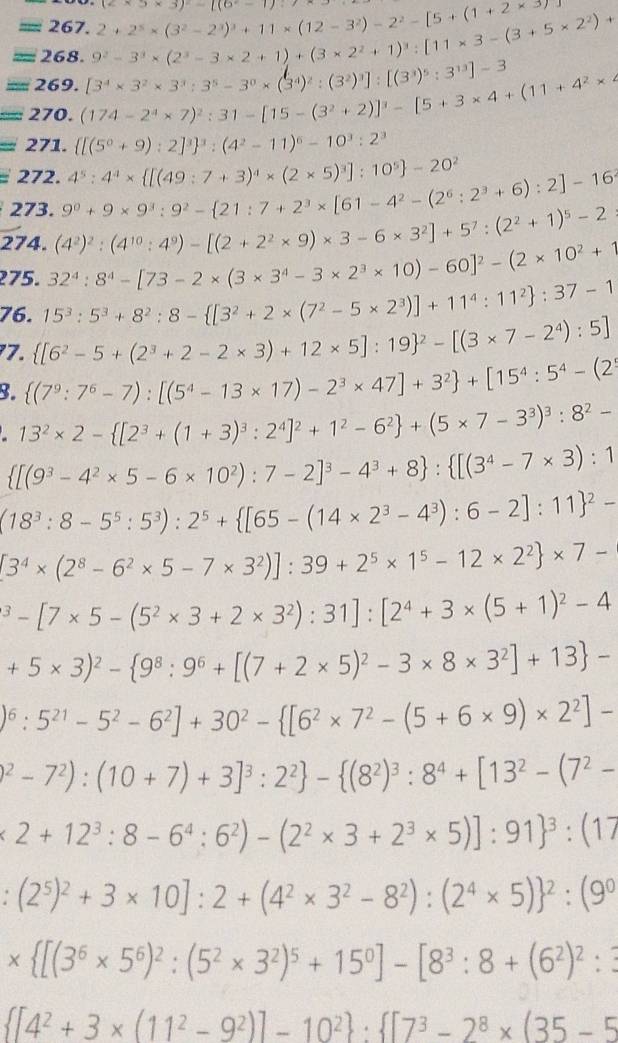 267. 2 + 2⁵ × (3² – 2³)³ + 11 × (12 – 3²) – 2² – [5 + (1 + 2 × 3)
268. 9² – 3³ × (2³ – 3 × 2 + 1) + (3 × 2² + 1)³ : [11 × 3 – (3 + 5 × 2²) +
269. [3⁴ × 3² × 3³ : 3⁵ – 3⁰ × (3⁴)² : (3²)³] : [(3³)⁵ : 3¹³] – 3
270. (174 – 2⁴ × 7)² : 31 – [15 – (3² + 2)]³ – [5 + 3 × 4 + (11 + 4² ×
271. {[(5⁰ + 9) : 2]³}³ : (4² – 11)⁶ – 10³ : 2³
272. 4⁵ : 4⁴ × {[(49 : 7 + 3)⁴ × (2 × 5)³] : 10⁵} – 20²
273. 9⁰ + 9 × 9³ : 9² – {21 : 7 + 2³ × [61 – 4² – (2⁶ : 2³ + 6) : 2] – 16²
274. (4²)² : (4¹⁰ : 4⁹) – [(2 + 2² × 9) × 3 – 6 × 3²] + 5⁷ : (2² + 1)⁵ – 2 :
275. 32⁴ : 8⁴ – [73 – 2 × (3 × 3⁴ – 3 × 2³ × 10) – 60]² – (2 × 10² + 1
76. 15³ : 5³ + 8² : 8 – {[3² + 2 × (7² – 5 × 2³)] + 11⁴ : 11²} : 37 – 1
77. {[6² – 5 + (2³ + 2 – 2 × 3) + 12 × 5] : 19}² – [(3 × 7 – 2⁴) : 5]
8. {(7⁹ : 7⁶ – 7) : [(5⁴ – 13 × 17) – 2³ × 47] + 3²} + [15⁴ : 5⁴ – (2⁵
. 13² × 2 – {[2³ + (1 + 3)³ : 2⁴]² + 1² – 6²} + (5 × 7 – 3³)³ : 8² –
{[(9³ – 4² × 5 – 6 × 10²) : 7 – 2]³ – 4³ + 8} : {[(3⁴ – 7 × 3) : 1
(18³ : 8 – 5⁵ : 5³) : 2⁵ + {[65 – (14 × 2³ – 4³) : 6 – 2] : 11}² –
[3⁴ × (2⁸ – 6² × 5 – 7 × 3²)] : 39 + 2⁵ × 1⁵ – 12 × 2²} × 7 –
³ – [7 × 5 – (5² × 3 + 2 × 3²) : 31] : [2⁴ + 3 × (5 + 1)² – 4
+ 5 × 3)² – {9⁸ : 9⁶ + [(7 + 2 × 5)² – 3 × 8 × 3²] + 13} –
)⁶ : 5²¹ – 5² – 6²] + 30² – {[6² × 7² – (5 + 6 × 9) × 2²] –
)² – 7²) : (10 + 7) + 3]³ : 2²} – {(8²)³ : 8⁴ + [13² – (7² –
× 2 + 12³ : 8 – 6⁴ : 6²) – (2² × 3 + 2³ × 5)] : 91}³ : (17
: (2⁵)² + 3 × 10] : 2 + (4² × 3² – 8²) : (2⁴ × 5)}² : (9⁰
× {[(3⁶ × 5⁶)² : (5² × 3²)⁵ + 15⁰] – [8³ : 8 + (6²)² :
{[4² + 3 × (11² – 9²)] – 10²} : {[7³ – 2⁸ × (35 – 5